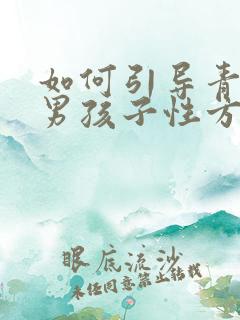 如何引导青
男孩子性方
眼底流沙
未经同意禁止转载